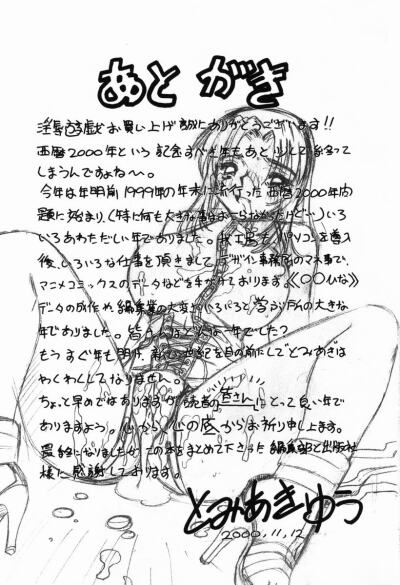 あとがき
淫辱遊戯お買い上げ誠にありがとうございます!!
西暦2000年という記念すべき年もあと少しで終って
しまうんですよね〜。
今年は年明前1999年の年末に流行った西暦2000年問
題に始まり、(特に何も大きな事は起こらなかったけど…)いろ
いろあわただしい年でありました。 パソコンを導入
後、いろいろな仕事を頂きまして、デザイン事務所のマネ事で、
マニメコミックスのデータなどを手がけております。《〇〇ひな》
データの成作や、編集業の大変さ 大きな
年でありました。皆さんはどんな一年でした?
もうすぐ年も明け、新しい世紀を目の前にしてとみあきは
わくわくしてなりません。
ちょっと早めではありますが読者の皆さんにとって良い年で
ありますよう。心から、心の底からお祈り申し上げます。
最終になりましたがこの本をまとめて下さった編集部と出版社
様に感謝しております。
とみあきゆう
2000.11.12